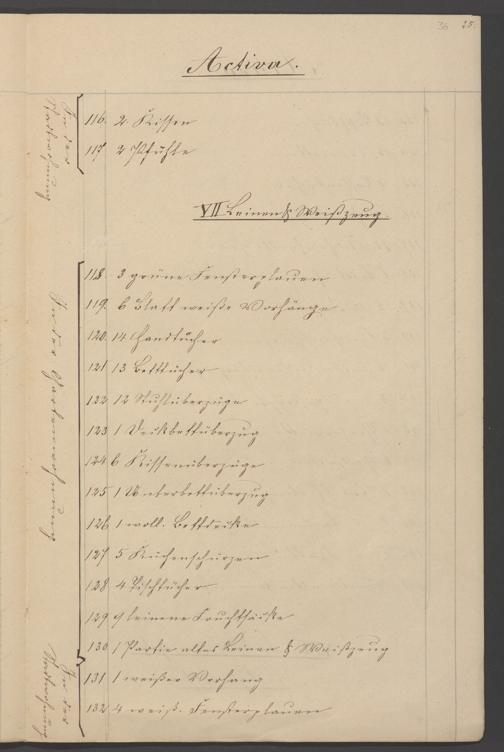 36 25.
Activa.
116. 2 Kissen
117 2 Pfühle
In der Stadtwohnung
VII Leinen & Weißzeug.
118. 3 grüne Fensterplauen
119. 6 Blatt weiße Vorhänge
120. 14 Handtücher
121 13 Betttücher
122 12 Stuhlüberzüge
123 1 Deckbettüberzug
124 6 Kissenüberzüge
125 1 Unterbettüberzug
126 1 woll. Bettdecke
127 5 Küchenschürzen
128 4 Tischtücher
129 9 leinene Fruchtsäcke
130 1 Partie altes Leinen & Weißzeug
In der Gartenwohnung
131 1 weißer Vorhang
132 4 weiß. Fensterplauen
In der Stadtwohnung